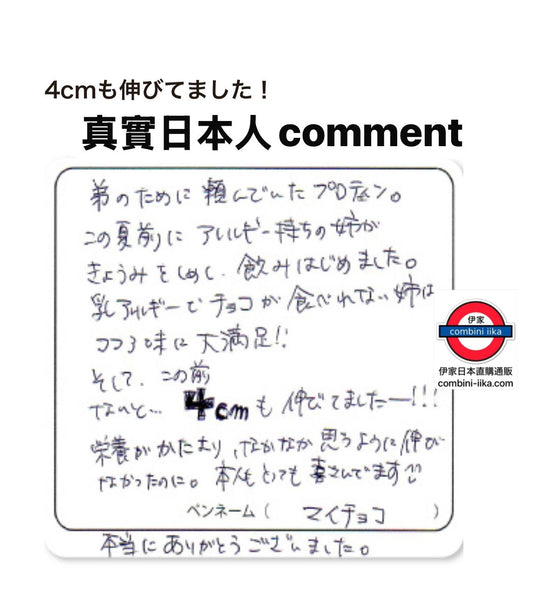 4cmも伸びてました！
真實日本人comment
弟のために頼んでいたプロテイン。
この夏前にアレルギー持ちの姉が
きょうみをしめし、飲みはじめました。
乳アレルギーでチョコが食べれない姉は
ココア味に大満足!!
そして、この前
なんと… 4cmも伸びてましたー!!!
栄養がかたまり、なかなか思うように伸び
なかったのに。本人もとっても喜んでます
ペンネーム（ マイチョコ ）
本当にありがとうございました。
伊家
combini iika
伊家日本直購通販
combini-iika.com